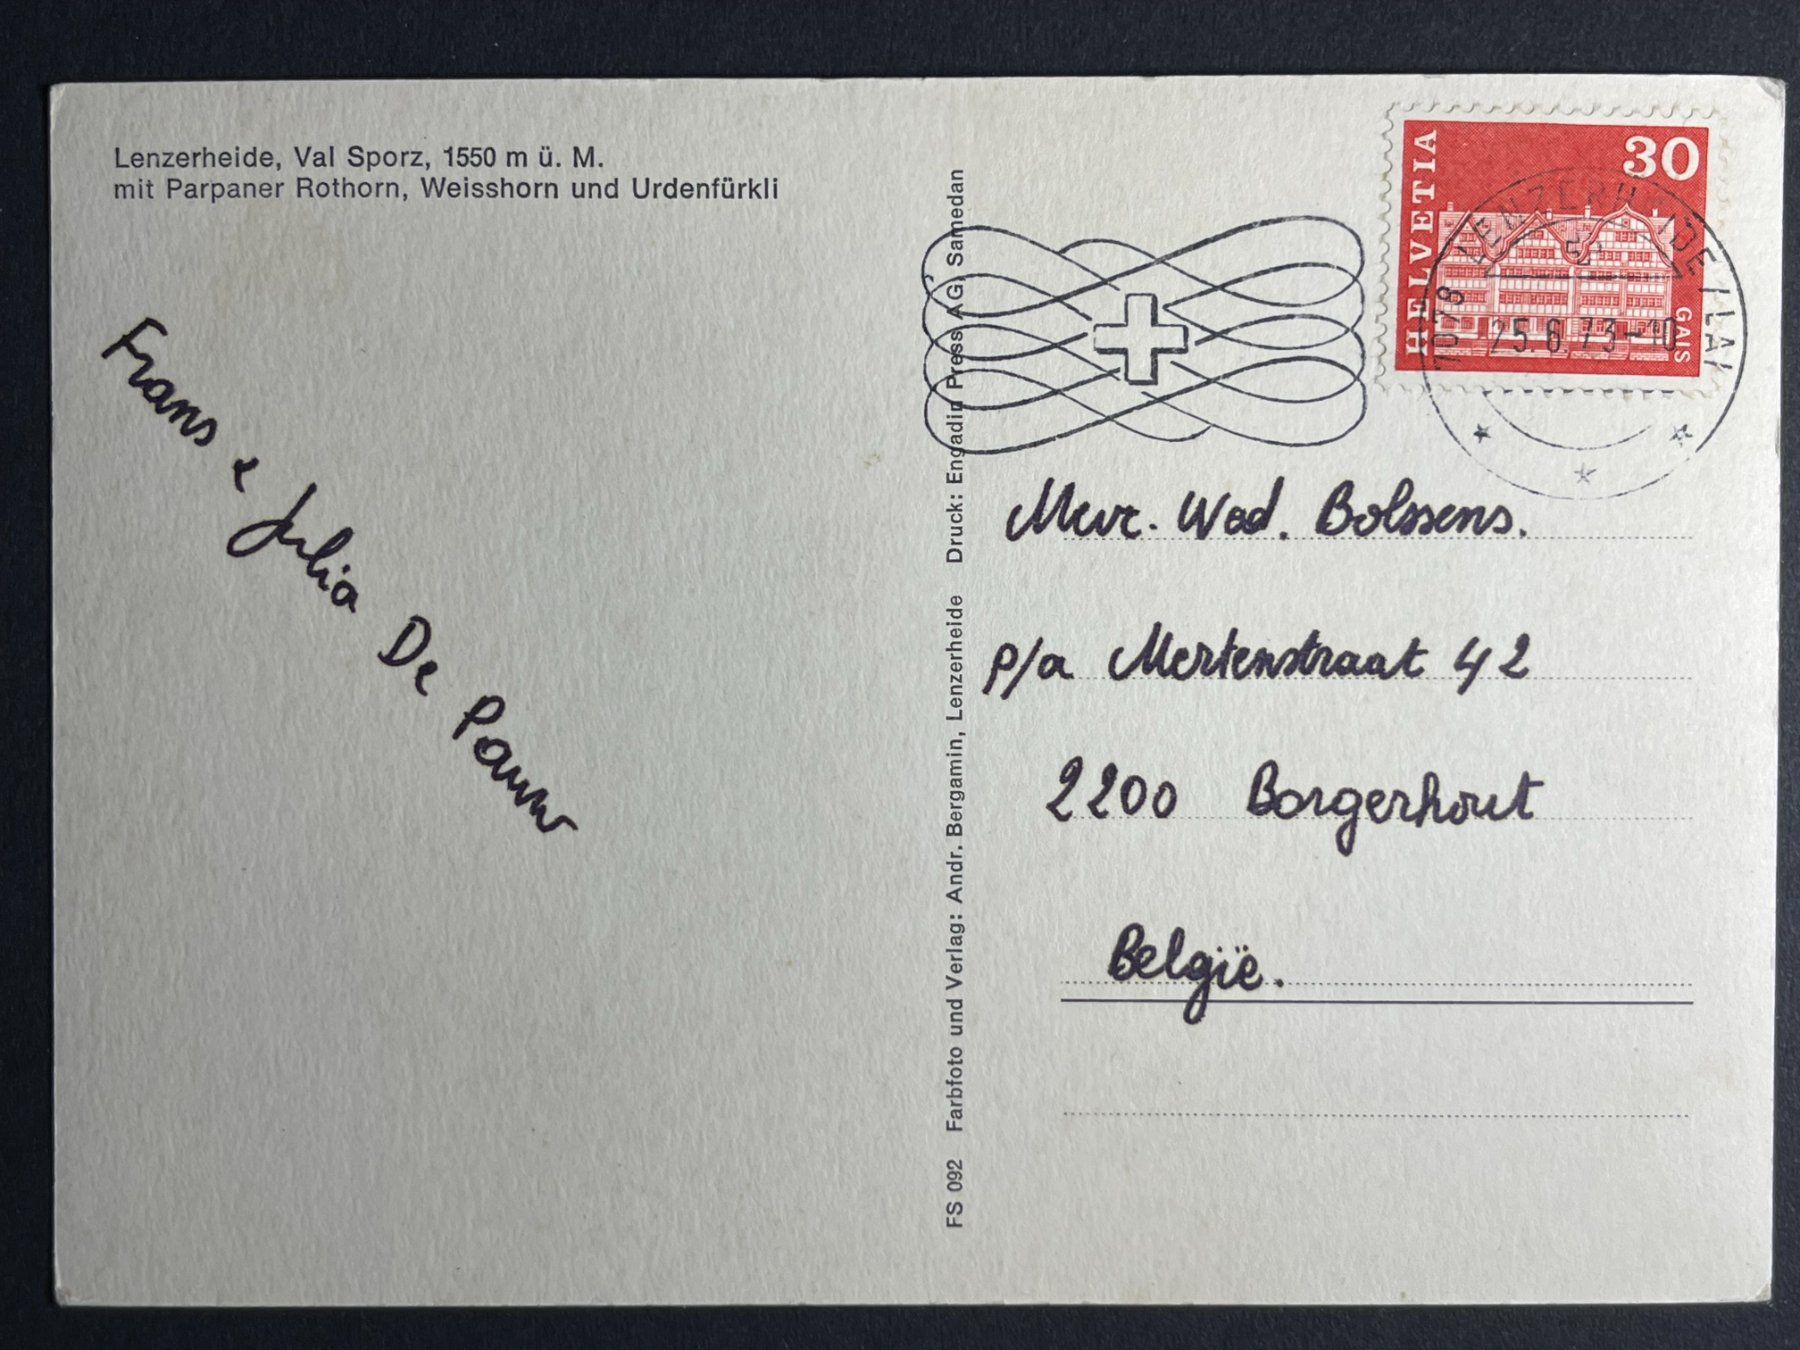 Lenzerheide, Val Sporz, 1550 m ü. M.
mit Parpaner Rothorn, Weisshorn und Urdenfürkli
Frans e Julia De Pauw
FS 092 Farbfoto und Verlag: Andr. Bergamin, Lenzerheide Druck: Engadin Press AG, Samedan
HELVETIA
30
GAIS
7078 LENZERHEIDE / LAI
25.6.73-10
Mevr. Wed. Bolssens.
p/a Mertenstraat 42
2200 Borgerhout
België.